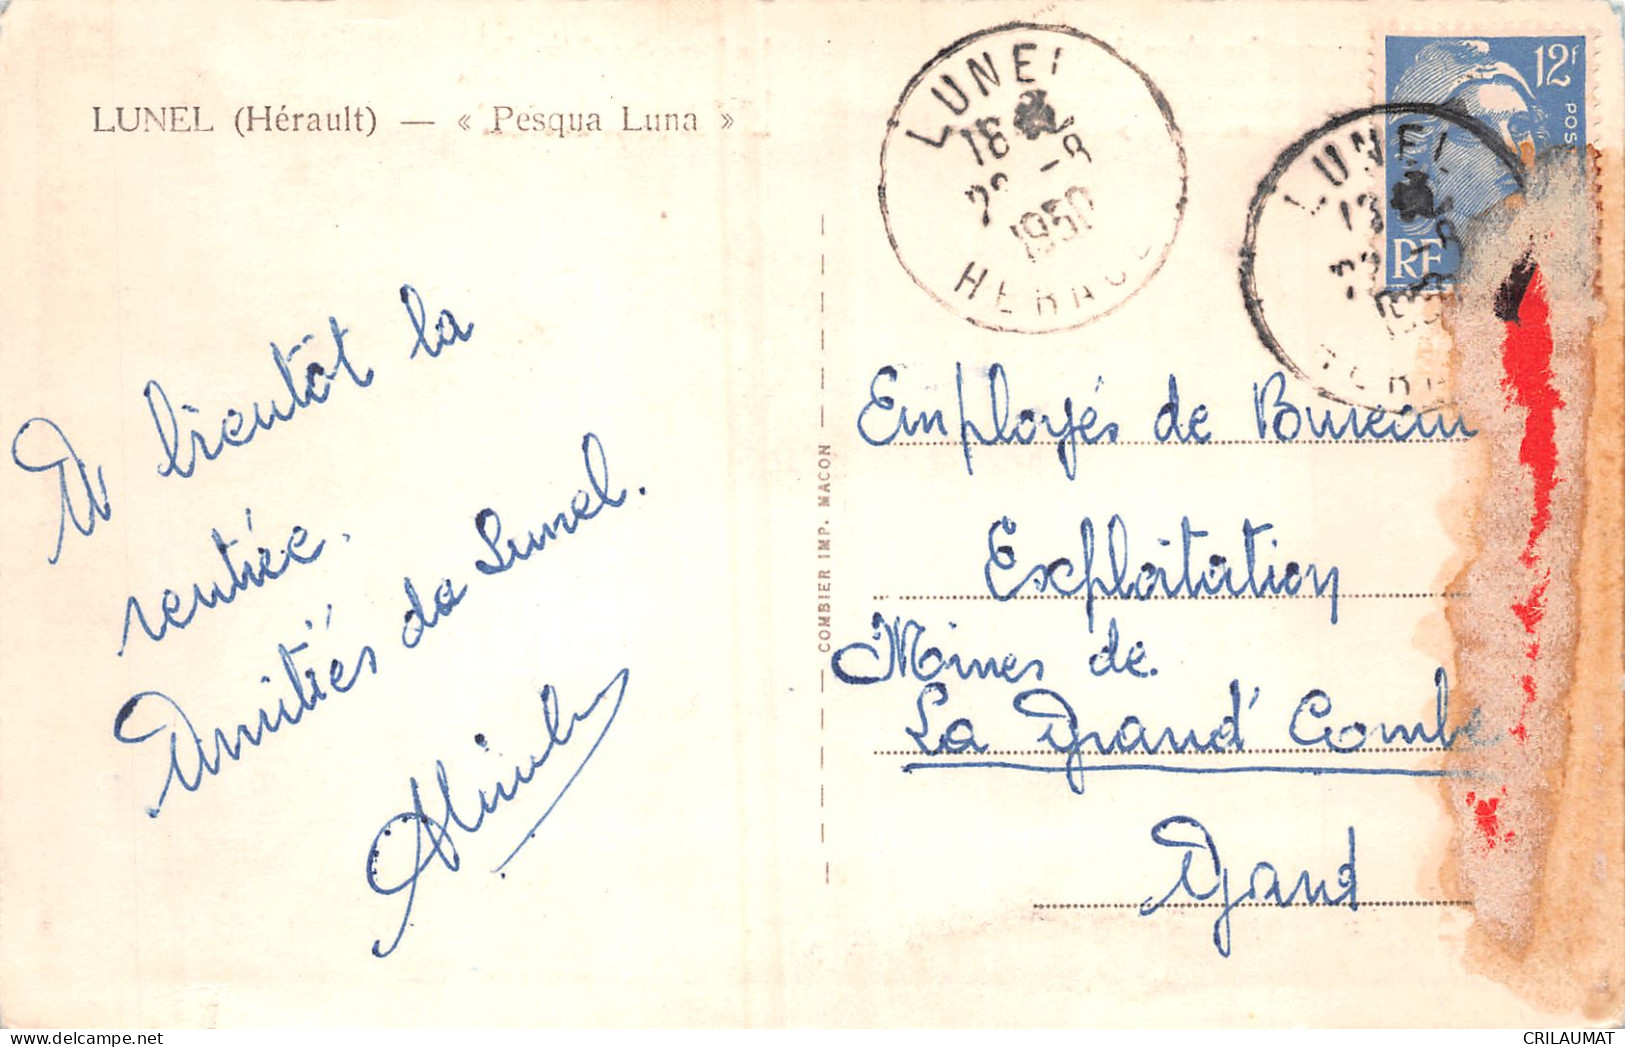 LUNEL (Hérault) — « Pesqua Luna »
A bientôt la
rentrée.
Amitiés de Lunel.
COMBIER IMP. MACON
LUNEL
18
1950
HERAU
12F
POS
RF
LUNEL
13
Employés de Bureau
Exploitation
Mines de
La Grand' Combe
Gard
CRILAUMAT